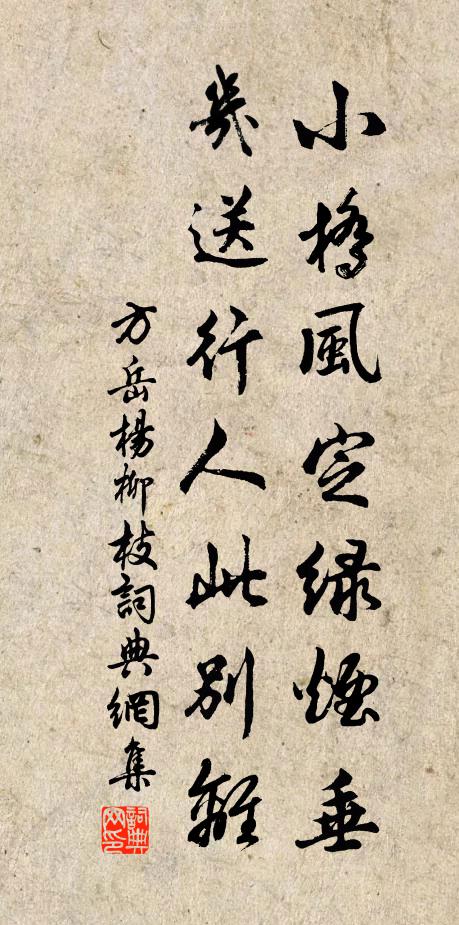 小橋風定綠煙垂
幾送行人此別離
方岳楊柳枝詞典網集
詞典網印